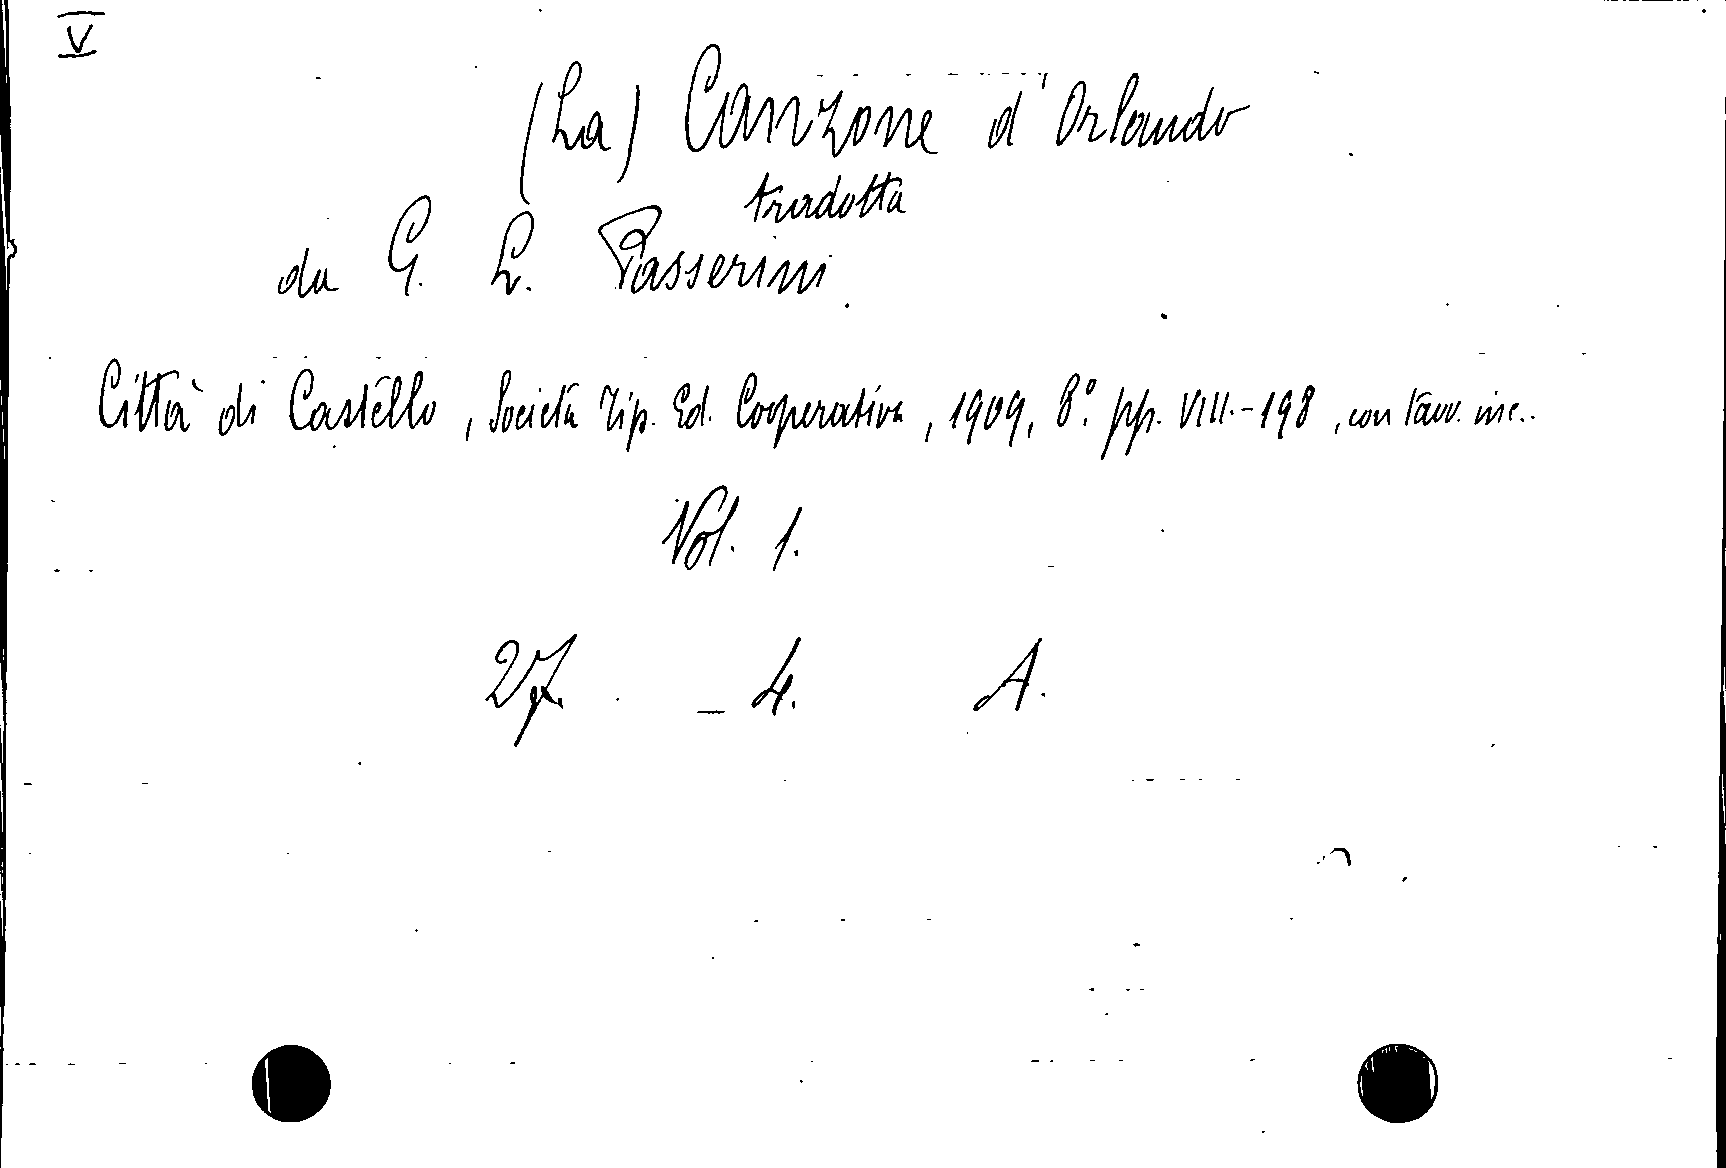 V
(La) Canzone d'Orlando
tradotta
da G. L. Passerini.
Città di Castello, Società Tip. Ed. Cooperativa, 1909, 8.° pp. VIII.-198, con tavv. inc..
Vol. 1.
27. - 4. A.